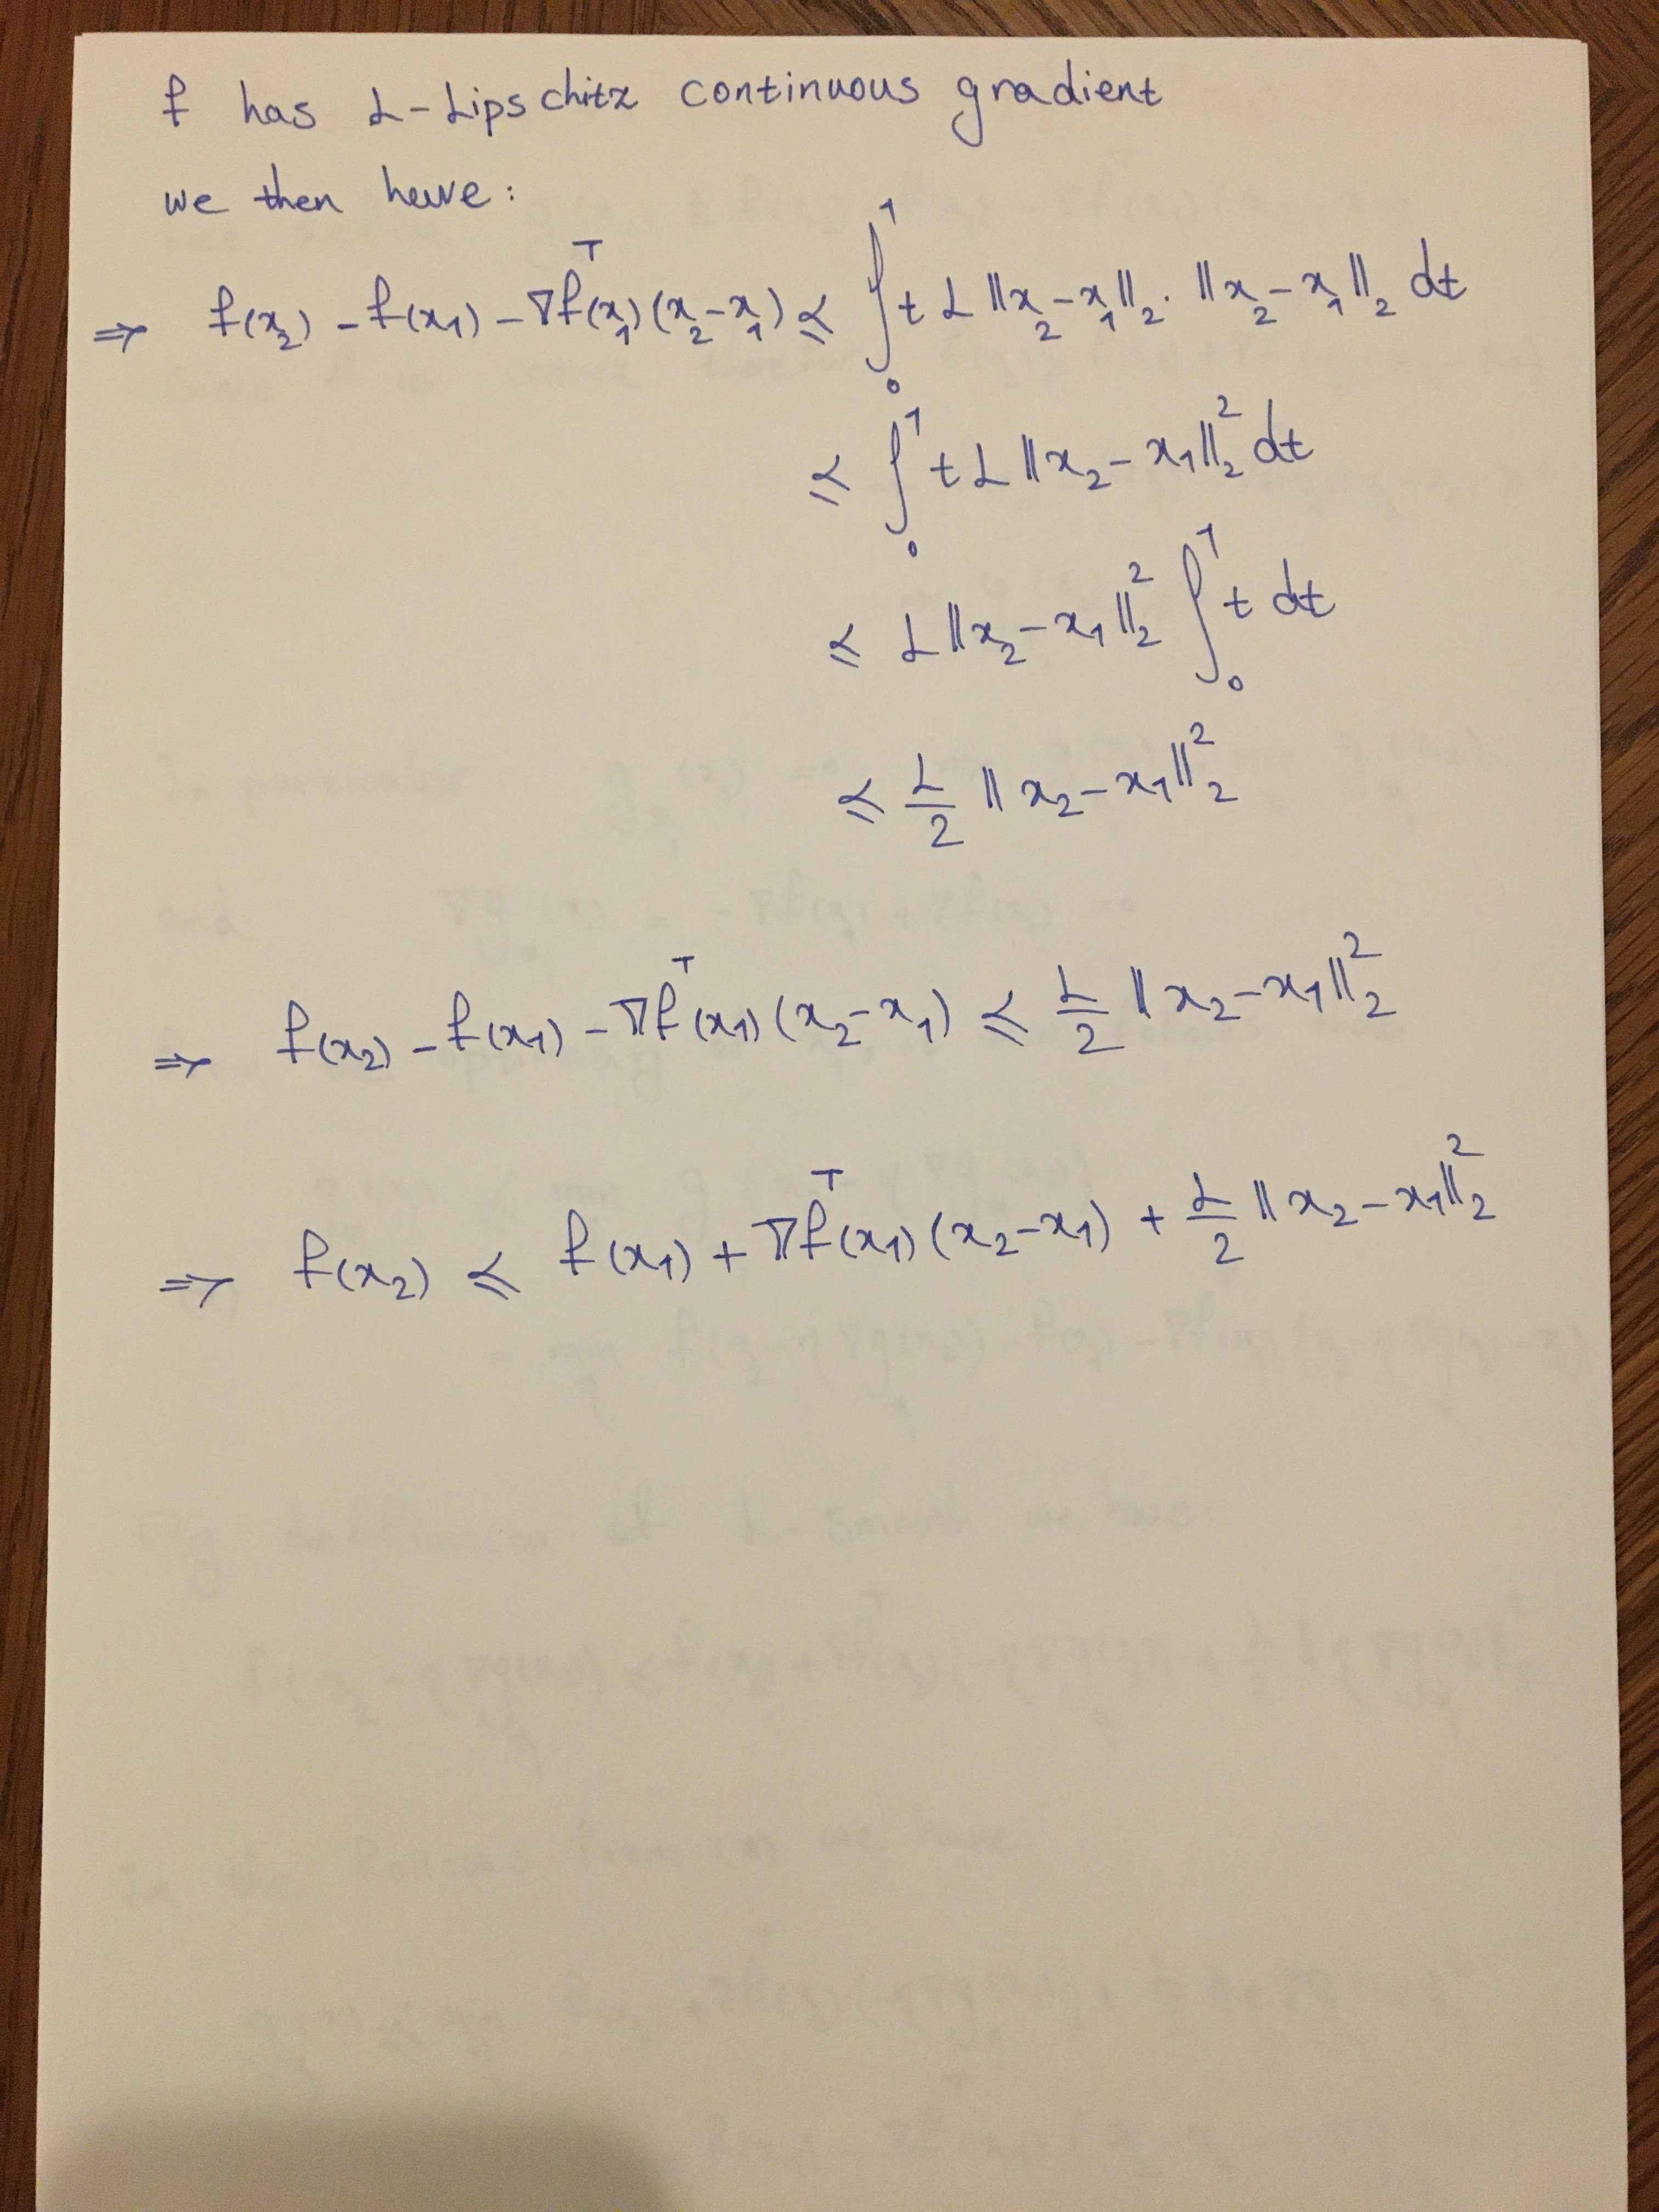 f has L-Lipschitz continuous gradient
we then have:
⇒ f(x₂) - f(x₁) - ∇fᵀ(x₁)(x₂-x₁) ⩽ ∫₀¹ t L ‖x₂-x₁‖₂ . ‖x₂-x₁‖₂ dt
⩽ ∫₀¹ t L ‖x₂-x₁‖₂² dt
⩽ L ‖x₂-x₁‖₂² ∫₀¹ t dt
⩽ L/2 ‖x₂-x₁‖₂²
⇒ f(x₂) - f(x₁) - ∇fᵀ(x₁)(x₂-x₁) ⩽ L/2 ‖x₂-x₁‖₂²
⇒ f(x₂) ⩽ f(x₁) + ∇fᵀ(x₁)(x₂-x₁) + L/2 ‖x₂-x₁‖₂²